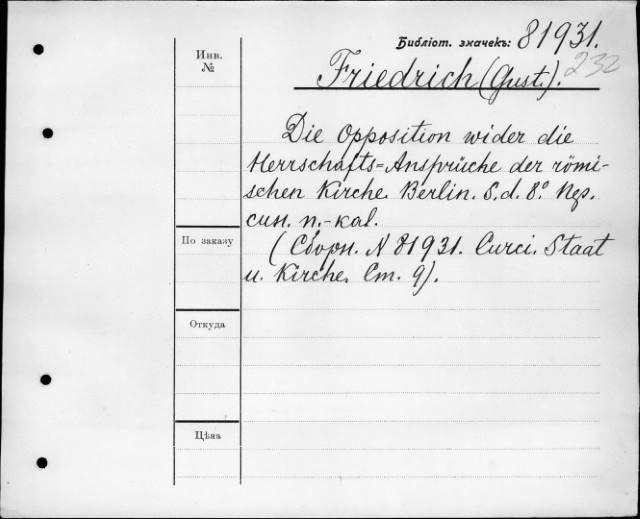 Библіот. значекъ: 81931.
232
Инв.
№
Friedrich (Gust.).
Die Opposition wider die
Herrschafts=Ansprüche der römi-
schen Kirche. Berlin. S.d. 8.°
син. п.-kal.
По заказу
(Сборн. N 81931. Curci. Staat
u. Kirche. Ст. 9).
Откуда
Цѣна